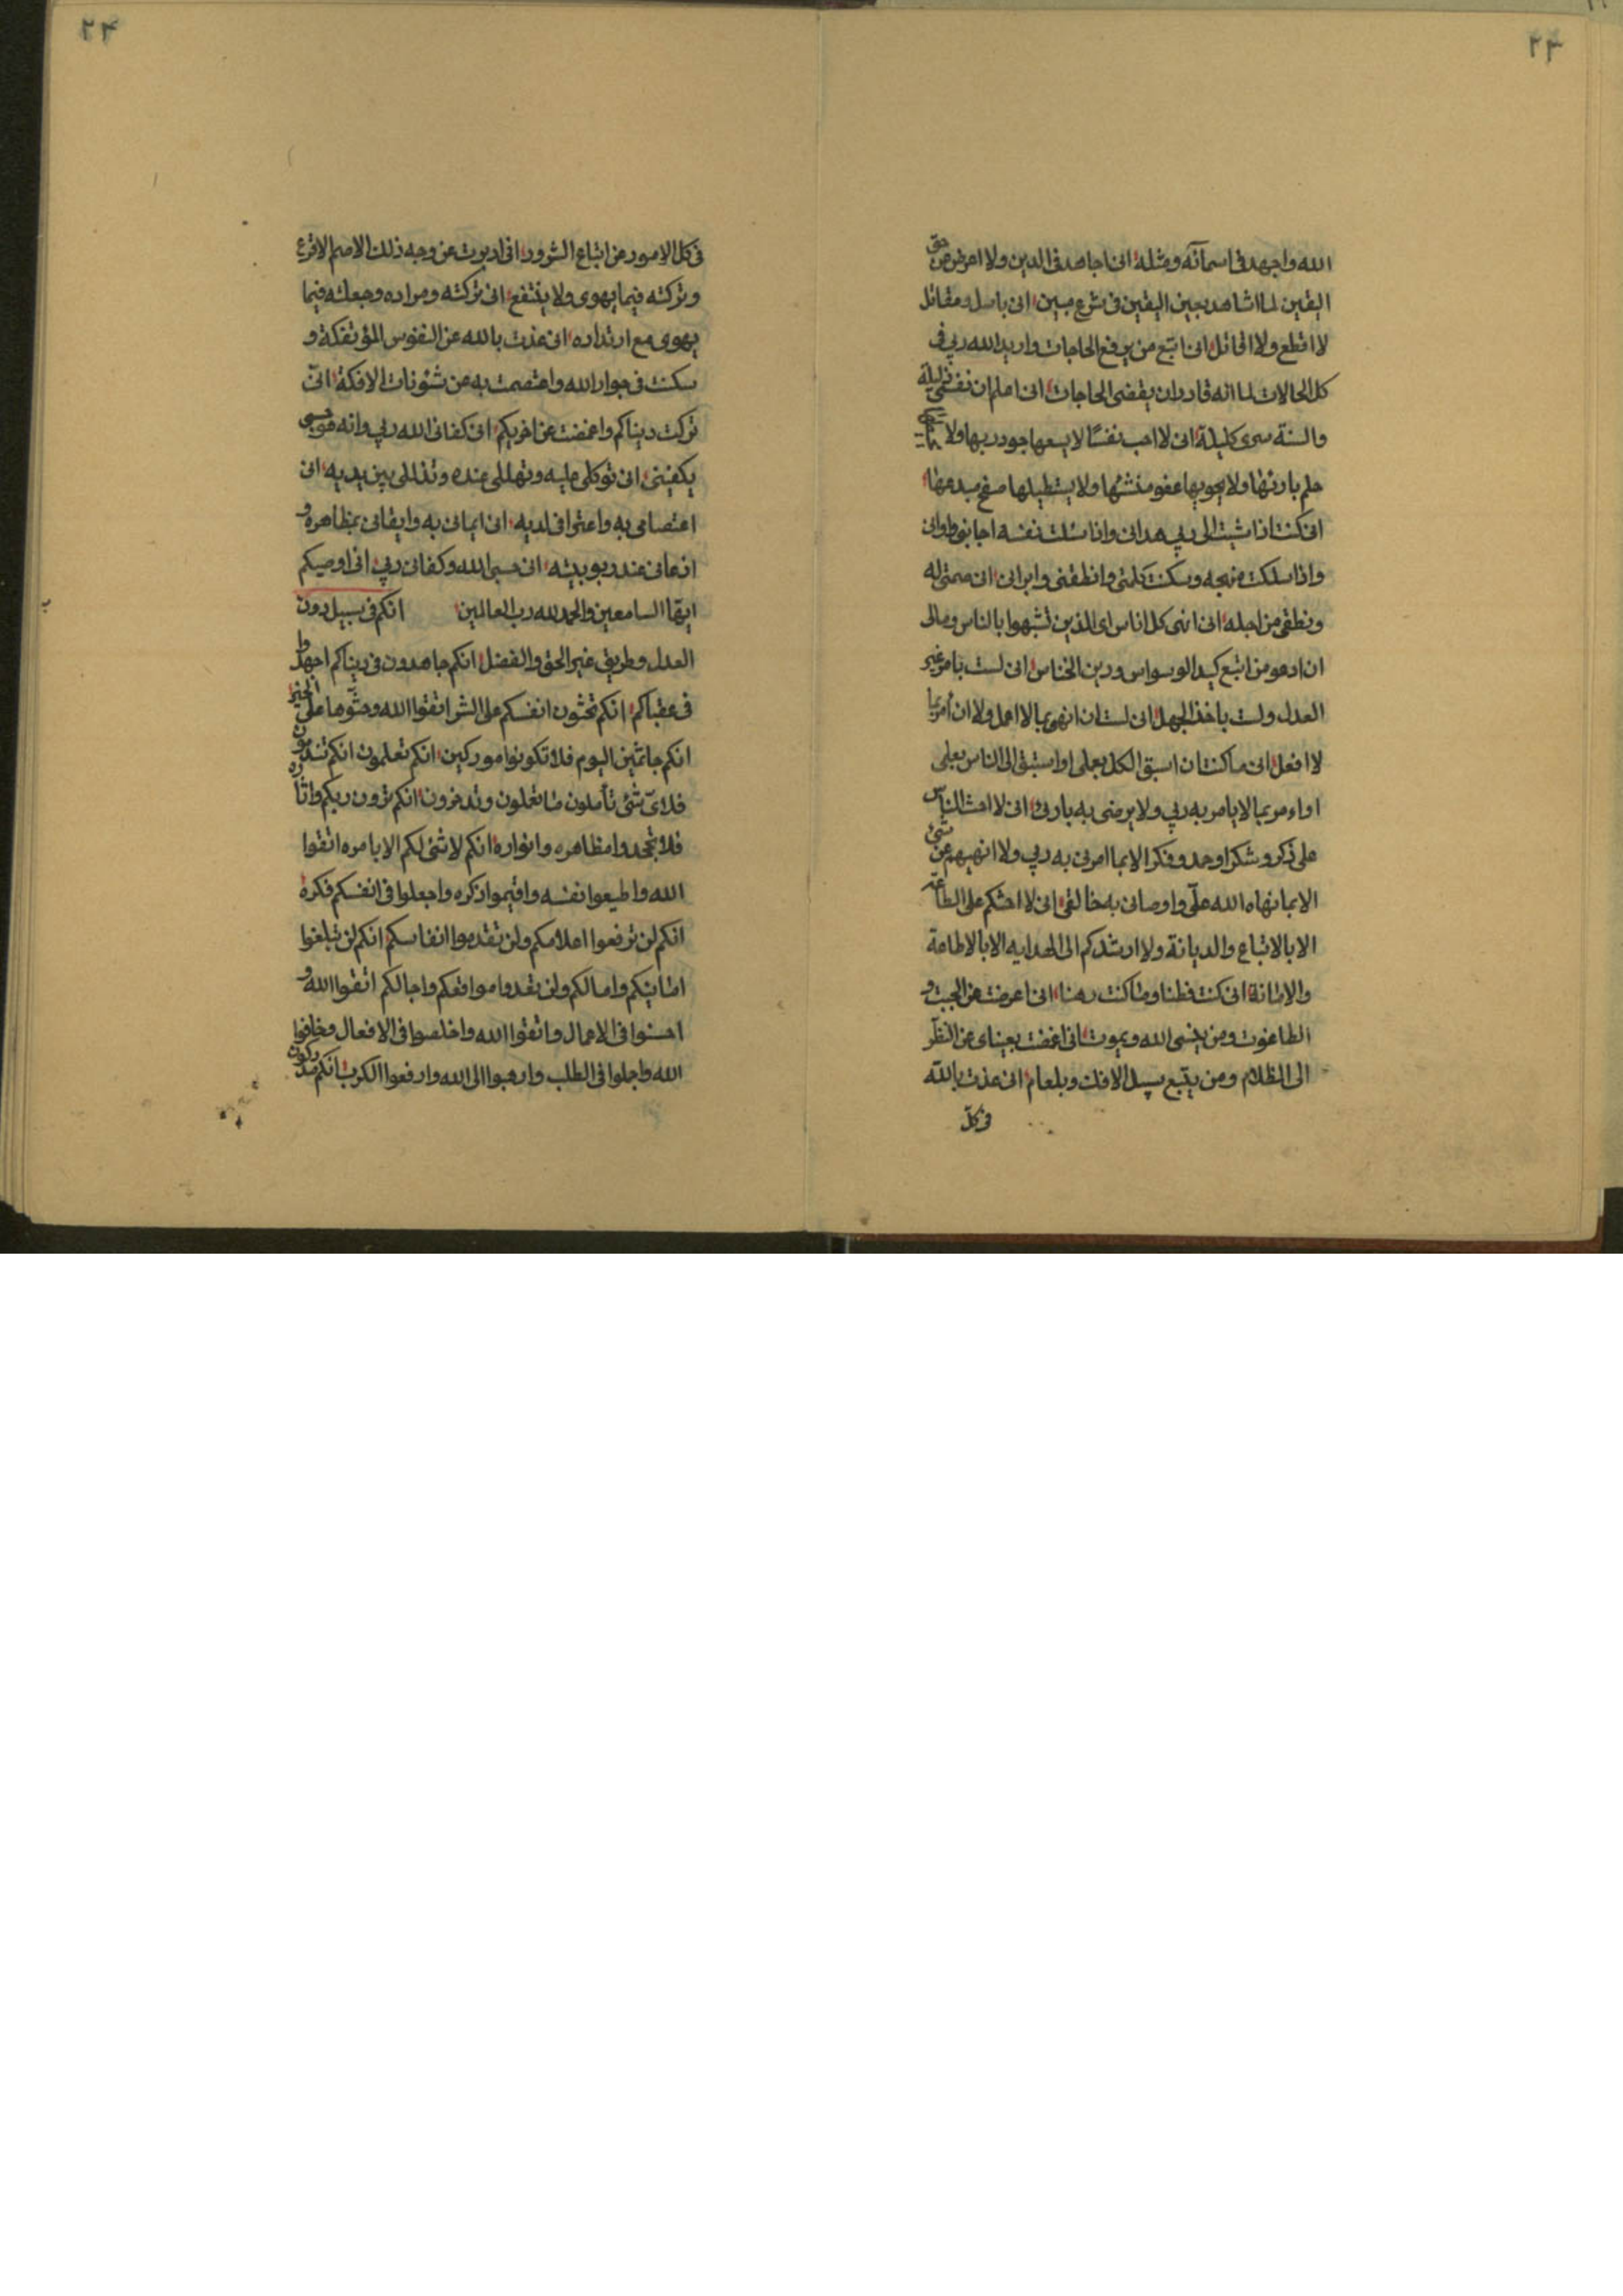 ٢٣
الله واجهد فی اسمآئه ومثله انی اجاهد فی الدین ولا اعرض عن حق
الیقین لما اشاهد بعین الیقین فی شرع مبین انی باسل ومقاتل
لا اقطع ولا اخاتل انی اتبع من یرفع الحاجات وارید الله ربی فی
کل الحالات لما انه قادر ان یقضی الحاجات انی اعلم ان نفسی ذلیلة
والسنة سری کلیلة انی لا احب نفسًا لا یسعها جود ربها ولا
حلم بارئها ولا یحویها عفو منشئها ولا یستطیلها صفح مبدعها
انی کنت اذا شیت الی ربی هدانی واذا سئلت نفسه اجابنی واوانی
واذا سلکت منهجه وسکت کلمتی وانطقنی وابرانی انی صمتی له
ونطقی من اجله انی انهی کل اناس ای الذین تشبهوا بالناس ومالی
ان ادعو من اتبع کید الوسواس ودین الخناس انی لست بامر غیر
العدل ولست باخذ الجهل انی لست ان انهی بما لا اعمل ولا ان آمر بما
لا افعل انی ما کنت ان اسبق الکل بعملی او استبق الی الناس بعلمی
او اءمر بما لا یامر به ربی ولا یرضی به باریء انی لا احث الناس
علی ذکر وشکر او حد وفکر الا بما امرنی به ربی ولا انهیهم عن شیئ
الا بما نهاه الله علّی واوصانی به خالقی انی لا احثکم علی الطاعة
الا بالاتباع والدیانة ولا ارشدکم الی الهدایه الا بالاطاعة
والامانة انی کنت فطنا وما کنت رهنا انی اعرضت عن الجبت و
الطاغوت ومن ینسی الله ویموت انی اغمضت بعینای عن النظر
الی الظلام ومن یتبع سبیل الافک وبلعام انی عذت بالله
فی کل
٢٤
فی کل الامور من اتباع الشرور انی ادبرت عن وجه ذلک الاصم الاقرع
وترکته فیما یهوی ولا ینتفع انی ترکته ومراده وجعلته فیما
یهوی مع ارتداره انی عذت بالله عن النفوس المؤتفکة و
سکنت فی جوار الله واعتصمت به عن شئونات الافکة انّی
ترکت دیناکم واغمضت عن اخریکم انی کفانی الله ربی وانه هو حسبی
یکفینی انی توکلی علیه وتهللی عنده وتذللی بین یدیه انی
اعتصامی به واعترافی لدیه انی ایمانی به وایقانی بمظاهره و
اذعانی عند ربوبیته انی حسبی الله وکفانی ربی انی اوصیکم
ایها السامعین والحمد لله رب العالمین انکم فی سبیل دون
العدل وطریق غیر الحق والفضل انکم جاهدون فی دیناکم اجهدوا
فی عقباکم انکم تحثون انفسکم علی الشر اتقوا الله وحثّوها علی الخیر
انکم جاثمین الیوم فلا تکونوا مورکین انکم تعلمون انکم تندمون
فلایّ شئ تأملون ما تعملون وتدخرون انکم ترون ربکم واثاره
فلا تجحدوا مظاهره وانواره انکم لا شئ لکم الا بامره اتقوا
الله واطیعوا نفسه واقیموا ذکره واجعلوا فی انفسکم فکره
انکم لن ترفعوا اعلامکم ولن تقدموا انفاسکم انکم لن تبلغوا
امانیکم وامالکم ولن تعدوا مواقعکم واجالکم اتقوا الله و
احسنوا فی الاعمال واتقوا الله واخلصوا فی الافعال وخافوا
الله واجلوا فی الطلب وارهبوا الی الله وارفعوا الکرب انکم مدرکون